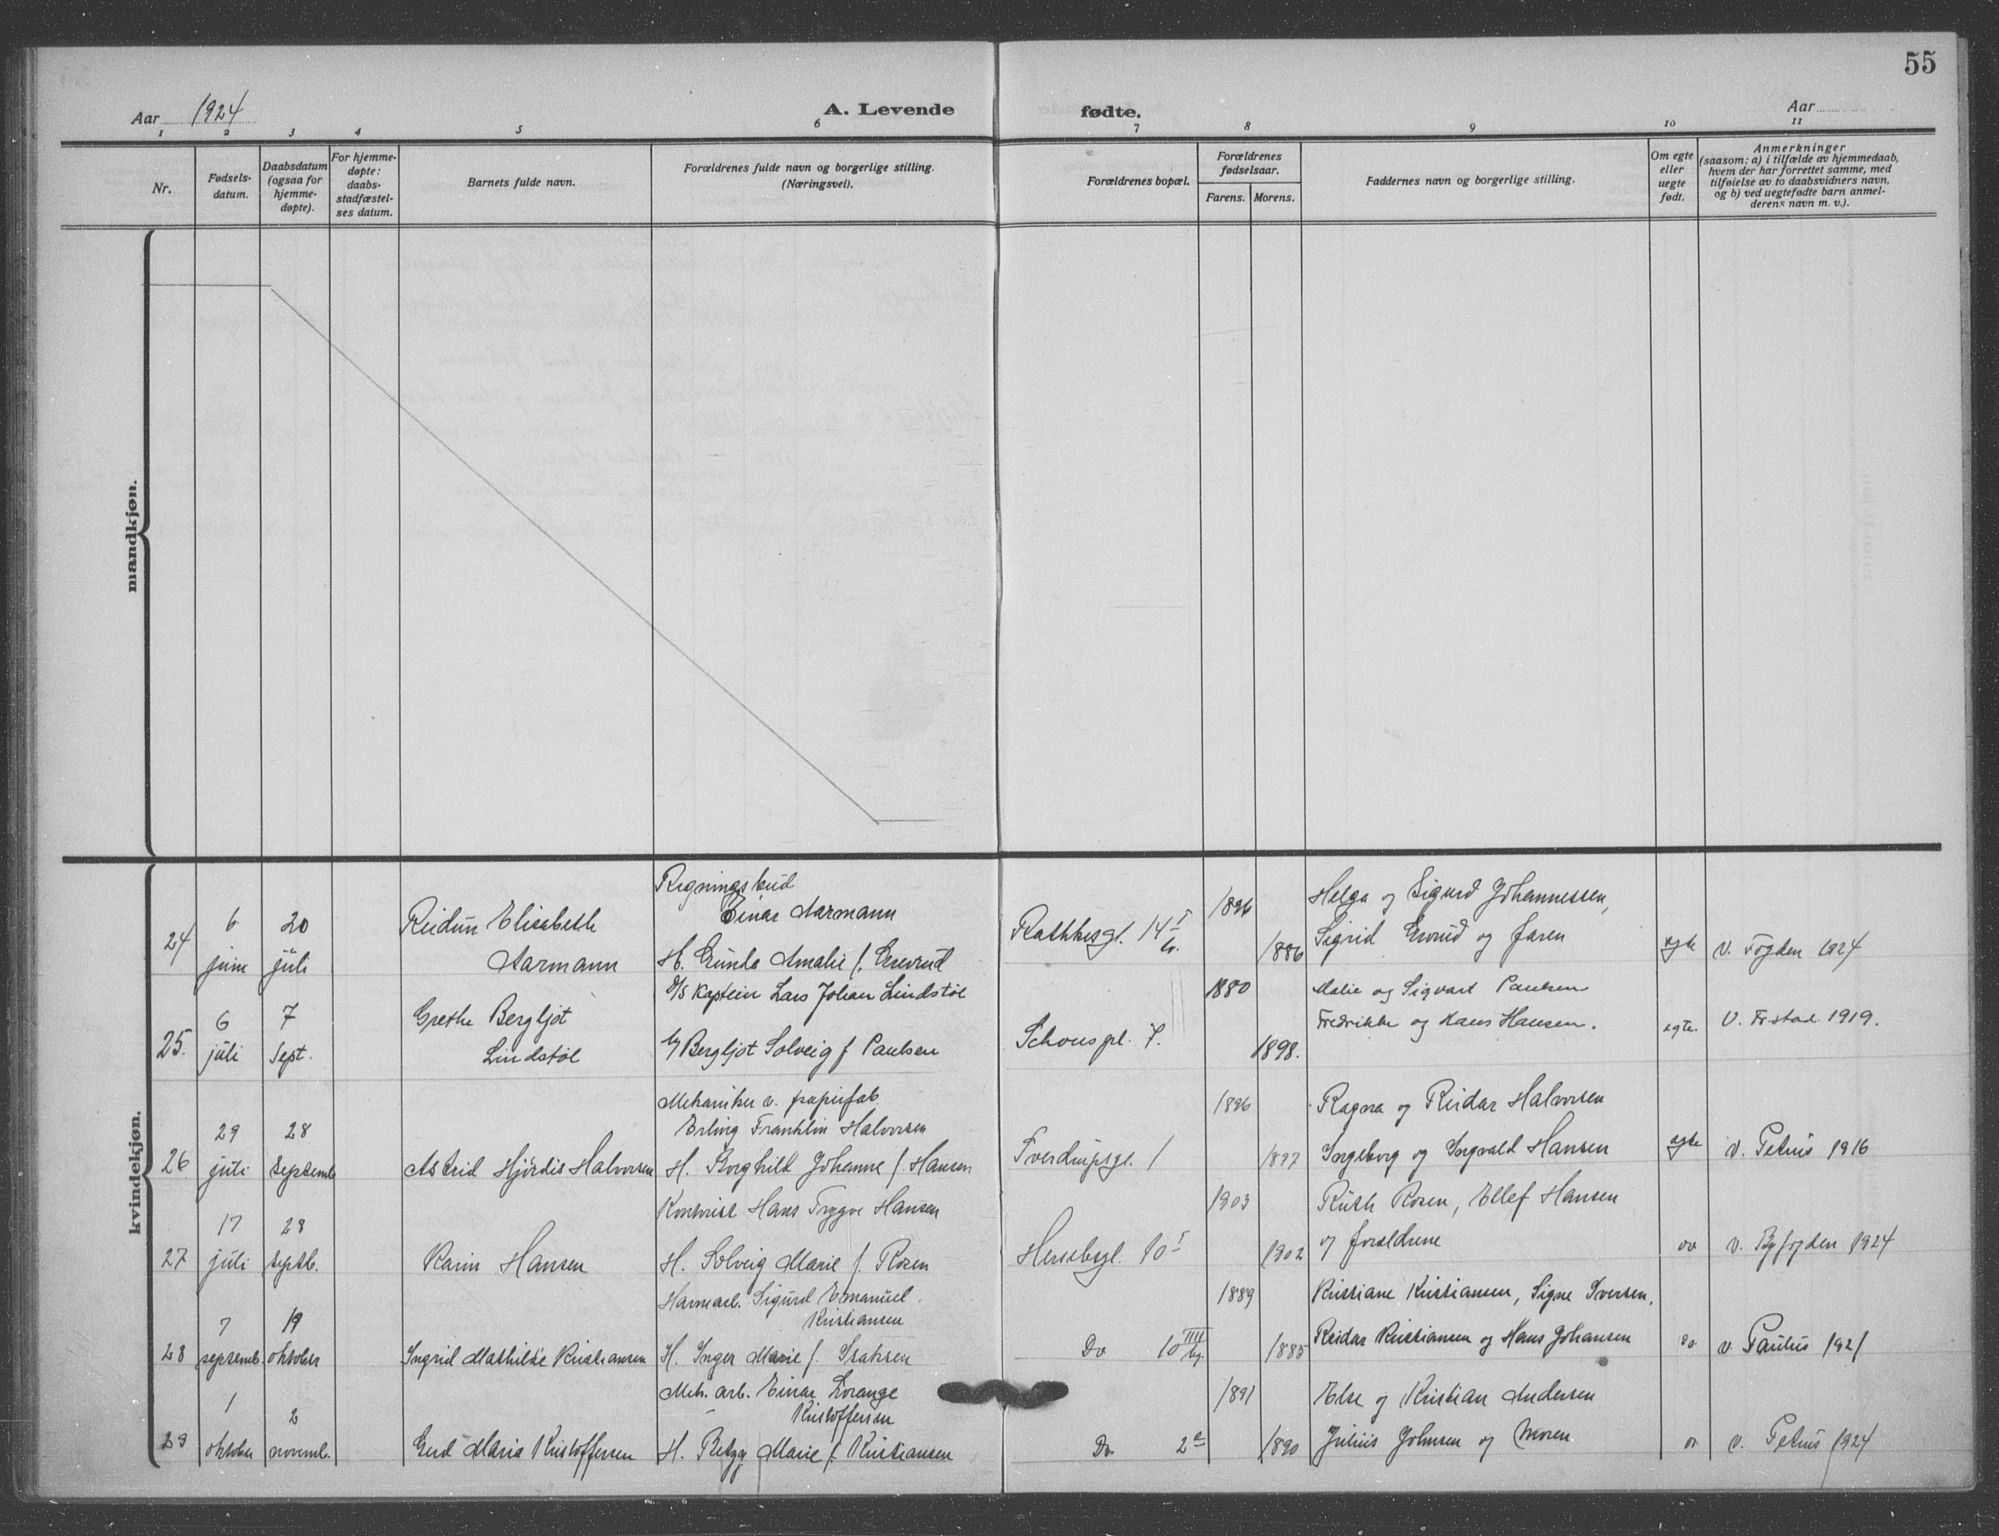 55
Aar 1924
A. Levende
fødte.
Aar
1 2 3 4 5 6 7 8 9 10 11
Nr.
Fødsels-
datum.
Daabsdatum
(ogsaa for
hjemme-
døpte).
For hjemme-
døpte:
daabs-
stadfæstel-
ses datum.
Barnets fulde navn.
Forældrenes fulde navn og borgerlige stilling.
(Næringsvei).
Forældrenes bopæl.
Forældrenes
fødselsaar.
Farens. Morens.
Faddernes navn og borgerlige stilling.
Om egte
eller
uegte
født.
Anmerkninger
(saasom: a) i tilfælde av hjemmedaab,
hvem der har forrettet samme, med
tilføielse av to daabsvidners navn,
og b) ved uegtefødte barn anmel-
derens navn m. v.).
mandkjøn.
kvindekjøn.
24
6
juni
20
juli
Reidun Elisabeth
Aarmann
Regningsbud
Einar Aarmann
H. Gunda Amalie f.
Rathkesgt. 14 I
1896
1886
Helga og Sigurd Johannessen,
Sigrid og faren
egte
v. Fogden 1924
25.
6
juli
7
Sept.
Grethe Bergljot
Lindstøl
D/S Kaptein Lars Johan Lindstøl
Bergljot Solveig f Paulsen
Schousgl. 7.
1880
1898.
Malie og Sigvart Paulsen
Fredrikke og Hans Hansen.
egte.
V. Frstad 1919.
26
29
juli
28
septemb
Astrid Hjørdis Halvorsen
Mekaniker v. papirfab.
Erling Franklin Halvorsen
H. Borghild Johanne f. Hansen
Tverdrupsgl. 1
1896
1897
Ragna og Reidar Halvorsen
Ingeborg og Ingvald Hansen
egte
v. Petrus 1916
27
17
juli
28
septb.
Karin Hansen
Kontorist Hans Trygve Hansen
H. Solveig Marie f. Rosen
Herslebsgl. 10 I
1903
1902
Ruth Rosen, Ellef Hansen
og foreldrene
do
v. Byfogden 1924
28
7
septemb.
19
oktober
Ingrid Mathilde Kristiansen
Havnearb. Sigurd Emanuel
Kristiansen
H. Inger Marie f. Isaksen
Do 10 IIII
1889
1885
Kristiane Kristiansen, Signe Iversen,
Reidar Kristiansen og Hans Johansen
do.
v. Paulus 1921
29
1
oktober
2
novemb.
Gerd Maria Kristoffersen
Mek. arb. Einar Lorange
Kristoffersen
H. Betzy Marie f. Kristiansen
Do 2 a
1891
1890
Else og Kristian Andersen
Julius Johnsen og Moren
v. Petrus 1924